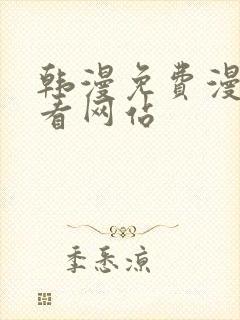 韩漫免费漫
看网站
季悉凉